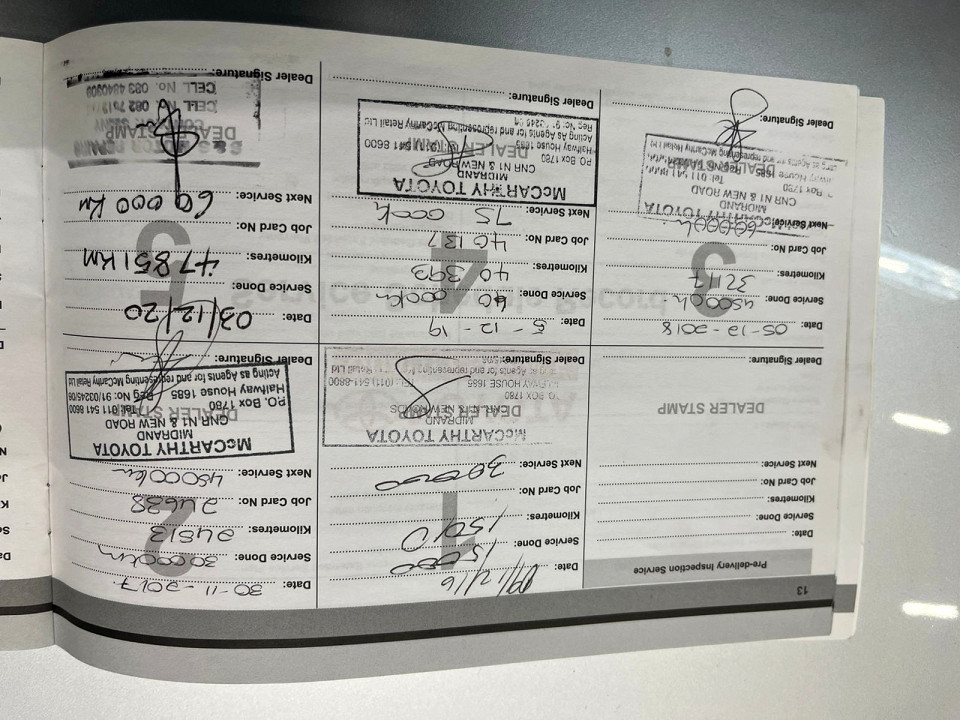 13
Pre-delivery Inspection Service
Date:
Service Done:
Kilometres:
Job Card No:
Next Service:
DEALER STAMP
Dealer Signature:
1
Date: 09/12/16
Service Done: 15000
Kilometres: 15010
Job Card No:
Next Service: 30000
McCARTHY TOYOTA
MIDRAND
DEALER STAMP
P.O. BOX 1780
HALFWAY HOUSE 1685
Tel: (011) 541-8800
Acting as Agents for and representing McCarthy Retail Ltd
Dealer Signature:
2
Date: 30-11-2017
Service Done: 30 000km
Kilometres: 24813
Job Card No: 24638
Next Service: 45000km
McCARTHY TOYOTA
MIDRAND
CNR N1 & NEW ROAD
DEALER STAMP
Tel: (011) 541 8800
P.O. Box 1780
Halfway House 1685
Reg No: 91/03245/06
Acting as Agents for and representing McCarthy Retail Ltd
Dealer Signature:
3
Date: 05-12-2018
Service Done: 45000k
Kilometres: 32117
Job Card No:
Next Service: 60000k
McCARTHY TOYOTA
MIDRAND
CNR N1 & NEW ROAD
Box 1780
DEALER STAMP
Dealer Signature:
4
Date: 5-12-19
Service Done: 60 000km
Kilometres: 40 393
Job Card No: 40137
Next Service: 75 000k
McCARTHY TOYOTA
MIDRAND
CNR N1 & NEW ROAD
DEALER STAMP
PO Box 1780
Halfway House 1685
Acting as Agents for and representing McCarthy Retail Ltd
Dealer Signature:
5
Date: 03/12/20
Service Done:
Kilometres: 47851 KM
Job Card No:
Next Service: 60 000 KM
DEALER STAMP
CELL No. 082
CELL No. 083 4840309
Dealer Signature: